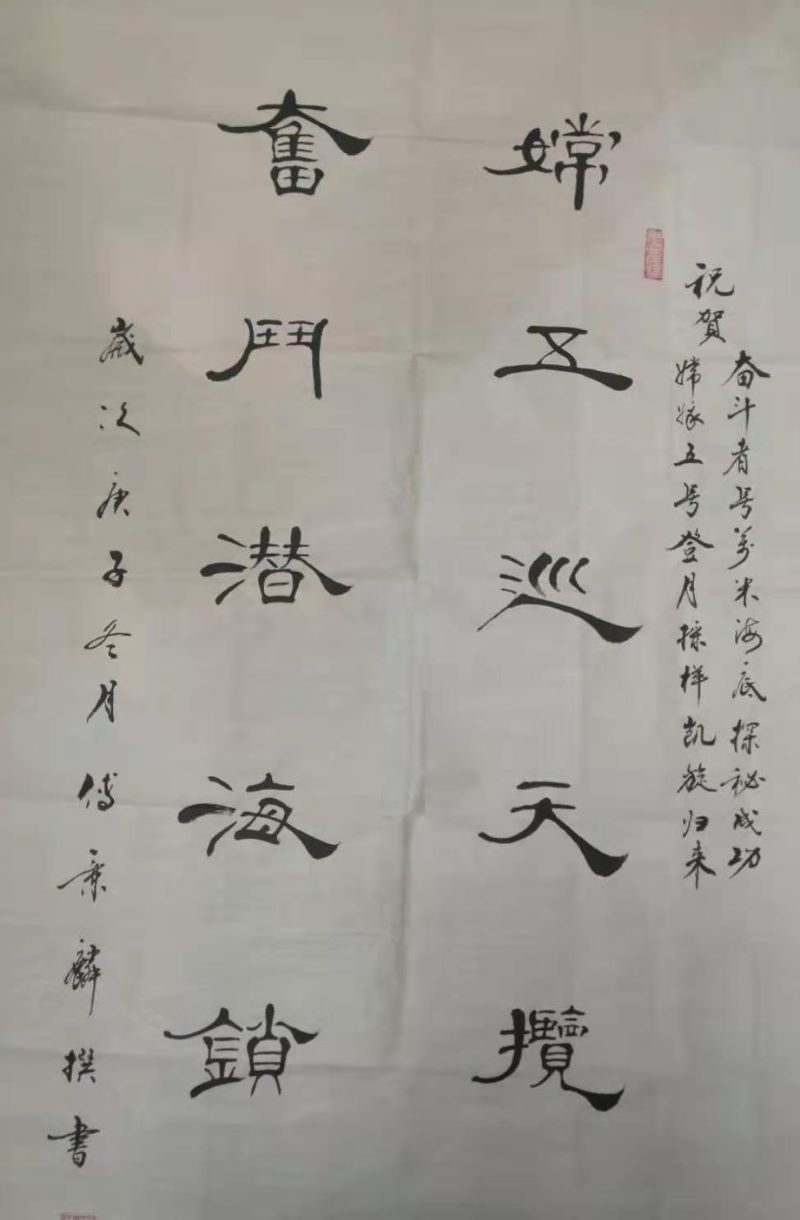 祝賀
奋斗者号萬米海底探祕成功
嫦娥五号登月採样凯旋归来
嫦五巡天攬
奮鬥潜海鎖
歲次庚子冬月傅秉麟撰書